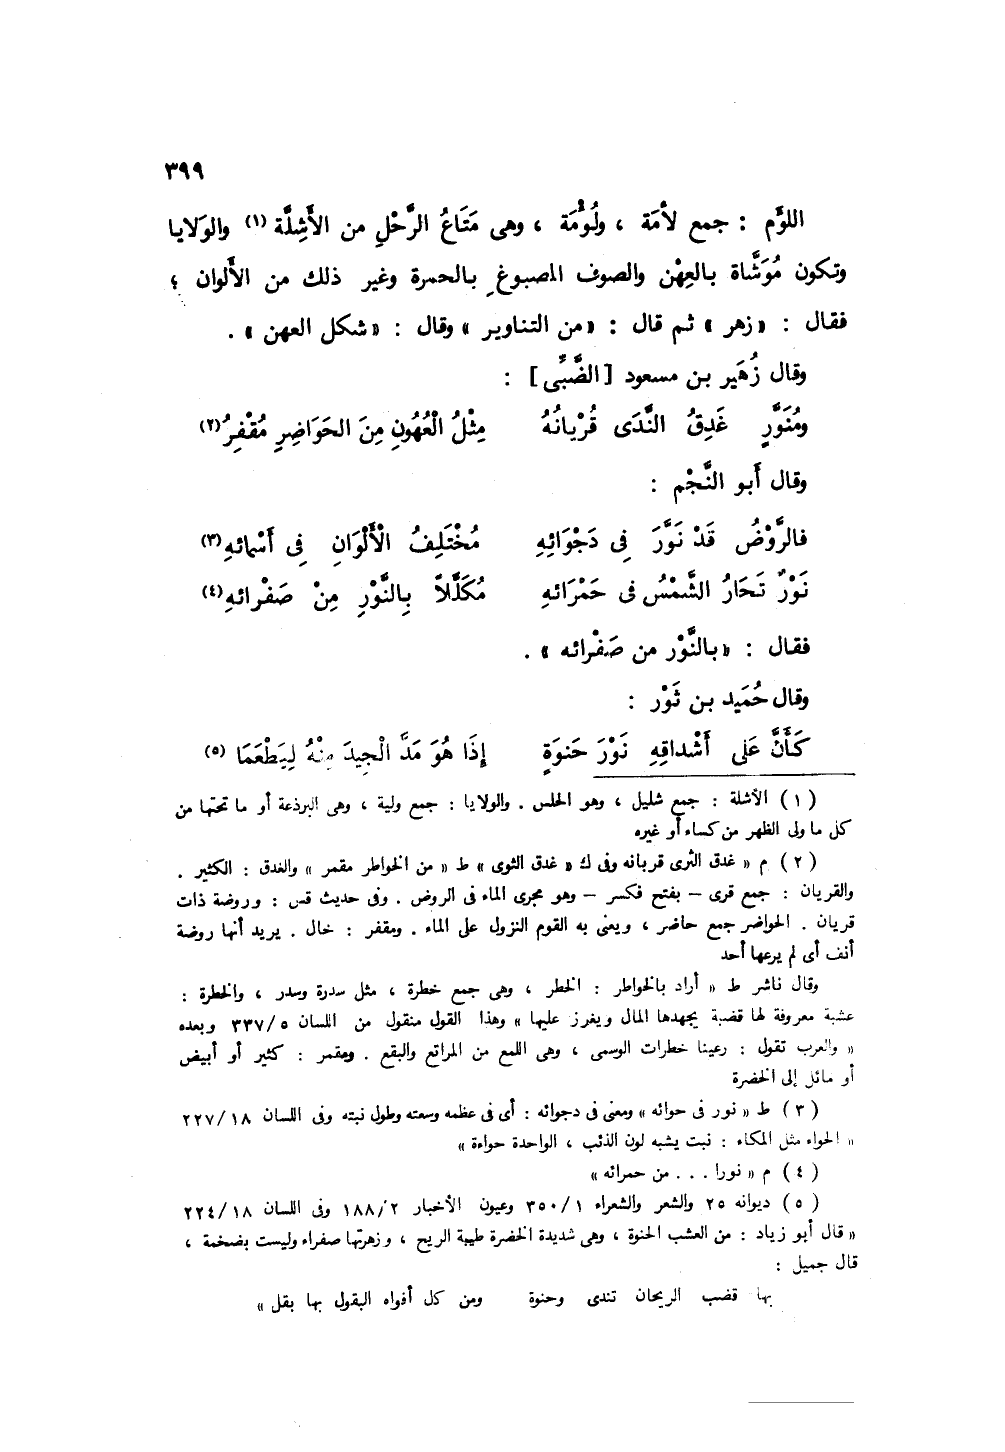 ٣٩٩
اللؤَّم : جمع لأمَة ، ولُؤْمَة ، وهى مَتَاعُ الرَّحْلِ من الأَشِلَّة (١) والوَلايا
وتكون مُوَشَّاة بالعِهْن والصوف المصبوغِ بالحمرة وغير ذلك من الألوان ؛
فقال : « زهر » ثم قال : « من التناوير » وقال : « شكل العهن » .
وقال زُهَير بن مسعود [ الضَّبِّى ] :
ومُنَوَّرٍ غَدِقُ النَّدَى قُرْيانُهُ مِثْلُ الْعُهُونِ مِنَ الحَوَاضِرِ مُقْفِرُ (٢)
وقال أبو النَّجْم :
فالرَّوْضُ قَدْ نَوَّرَ فِى دَجْوَائِهِ مُخْتَلِفُ الْأَلْوَانِ فِى أَسْمائهِ (٣)
نَوْرٌ تَحَارُ الشَّمْسُ فى حَمْرَائهِ مُكَلَّلاً بِالنَّوْرِ مِنْ صَفْرائهِ (٤)
فقال : « بالنَّوْر من صَفْرائه » .
وقال حُمَيد بن ثَوْر :
كَأَنَّ عَلى أَشْداقِهِ نَوْرَ حَنوَةٍ إِذَا هُوَ مَدَّ الْجِيدَ مِنْهُ لِيَطْعَمَا (٥)
( ١ ) الأشلة : جمع شليل ، وهو الحلس . والولايا : جمع ولية ، وهى البرذعة أو ما تحتها من
كل ما ولى الظهر من كساء أو غيره
( ٢ ) م « غدق الثرى قربانه وفى ك « غدق الثوى » ط « من الخواطر مقمر » والغدق : الكثير .
والقريان : جمع قرى – بفتح فكسر – وهو مجرى الماء فى الروض . وفى حديث قس : وروضة ذات
قريان . الحواضر جمع حاضر ، ويعنى به القوم النزول على الماء . ومقفر : خال . يريد أنها روضة
أنف أى لم يرعها أحد
وقال ناشر ط « أراد بالخواطر : الخطر ، وهى جمع خطرة ، مثل سدرة وسدر ، والخطرة :
عشبة معروفة لها قضبة يجهدها المال ويغرز عليها » وهذا القول منقول من اللسان ٣٣٧/٥ وبعده
« والعرب تقول : رعينا خطرات الوسمى ، وهى اللمع من المراتع والبقع . ومقمر : كثير أو أبيض
أو مائل إلى الخضرة
( ٣ ) ط « نور فى حوائه » ومعنى فى دجوائه : أى فى عظمه وسعته وطول نبته وفى اللسان ٢٢٧/١٨
« الحواء مثل المكاء : نبت يشبه لون الذئب ، الواحدة حواءة »
( ٤ ) م « نورا . . . من حمرائه »
( ٥ ) ديوانه ٢٥ والشعر والشعراء ٣٥٠/١ وعيون الأخبار ١٨٨/٢ وفى اللسان ٢٢٤/١٨
« قال أبو زياد : من العشب الحنوة ، وهى شديدة الخضرة طيبة الريح ، وزهرتها صفراء وليست بضخمة ،
قال جميل :
بها قضب الريحان تندى وحنوة ومن كل أفواه البقول بها بقل »